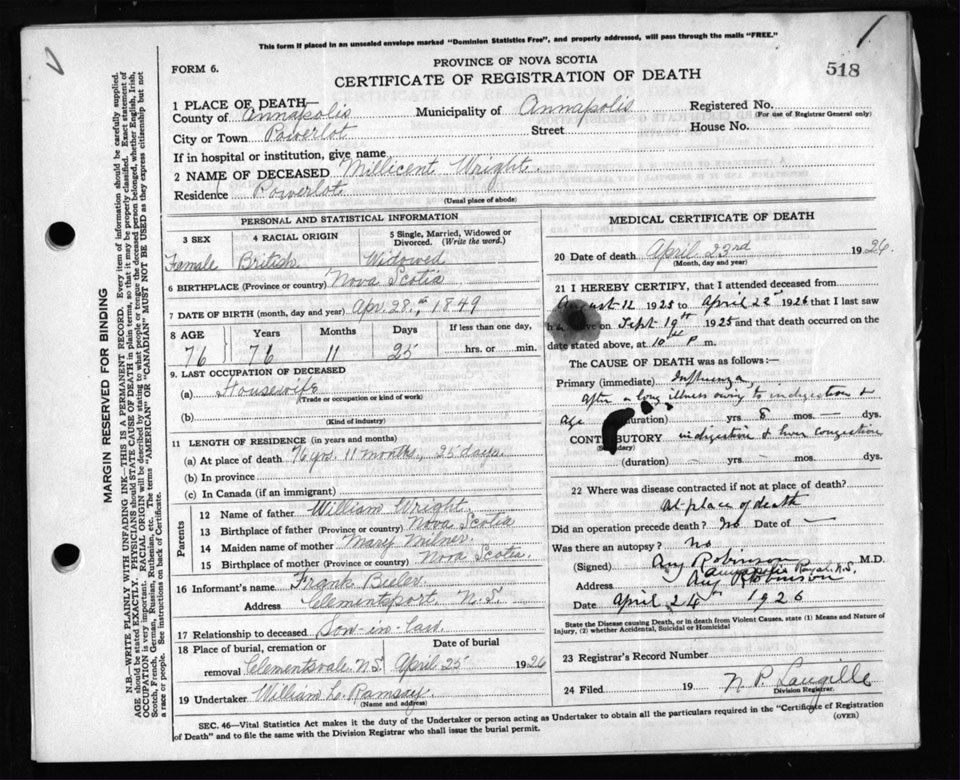 This form if placed in an unsealed envelope marked "Dominion Statistics Free", and properly addressed, will pass through the mails "FREE."
PROVINCE OF NOVA SCOTIA
FORM 6.
CERTIFICATE OF REGISTRATION OF DEATH
518
1 PLACE OF DEATH—
County of Annapolis Municipality of Annapolis Registered No.
(For use of Registrar General only)
City or Town Powerlot Street House No.
If in hospital or institution, give name
2 NAME OF DECEASED Millicent Wright
Residence Powerlot
(Usual place of abode)
PERSONAL AND STATISTICAL INFORMATION
3 SEX 4 RACIAL ORIGIN 5 Single, Married, Widowed or Divorced. (Write the word.)
Female British Widowed
6 BIRTHPLACE (Province or country) Nova Scotia
7 DATE OF BIRTH (month, day and year) Apr. 28th, 1849
8 AGE Years Months Days If less than one day,
76 76 11 25 hrs. or min.
9. LAST OCCUPATION OF DECEASED
(a) Housewife
(Trade or occupation or kind of work)
(b)
(Kind of industry)
11 LENGTH OF RESIDENCE (in years and months)
(a) At place of death 76 yrs. 11 months, 25 days.
(b) In province
(c) In Canada (if an immigrant)
Parents
12 Name of father William Wright
13 Birthplace of father (Province or country) Nova Scotia
14 Maiden name of mother Mary Milner
15 Birthplace of mother (Province or country) Nova Scotia.
16 Informant's name Frank Bieler
Address Clementsport, N.S.
17 Relationship to deceased Son-in-law
18 Place of burial, cremation or Date of burial
removal Clementsvale. N.S. April 25 1926
19 Undertaker William L. Ramsay.
(Name and address)
MEDICAL CERTIFICATE OF DEATH
20 Date of death April 23rd 1926.
(Month, day and year)
21 I HEREBY CERTIFY, that I attended deceased from
August 12 1925 to April 22nd 1926 that I last saw
h alive on Sept 19th 1925 and that death occurred on the
date stated above, at 10 P m.
The CAUSE OF DEATH was as follows:—
Primary (immediate) Influenza
after a long illness owing to indigestion &
age (duration) yrs 8 mos. — dys.
CONTRIBUTORY indigestion & liver congestion
(Secondary)
(duration) yrs mos. dys.
22 Where was disease contracted if not at place of death?
At place of death
Did an operation precede death? No Date of —
Was there an autopsy? no
(Signed) Robinson M.D.
Annapolis Royal, N.S.
Address Robinson
Date April 24th 1926
State the Disease causing Death, or in death from Violent Causes, state (1) Means and Nature of Injury, (2) whether Accidental, Suicidal or Homicidal
23 Registrar's Record Number
24 Filed 19 N. P. Langille
Division Registrar.
SEC. 46—Vital Statistics Act makes it the duty of the Undertaker or person acting as Undertaker to obtain all the particulars required in the "Certificate of Registration
of Death" and to file the same with the Division Registrar who shall issue the burial permit. (OVER)
MARGIN RESERVED FOR BINDING
N.B.—WRITE PLAINLY WITH UNFADING INK—THIS IS A PERMANENT RECORD. Every item of information should be carefully supplied.
AGE should be stated EXACTLY. PHYSICIANS should STATE CAUSE OF DEATH in plain terms, so that it may be properly classified. Exact statement of
OCCUPATION is very important. RACIAL ORIGIN will be described by stating to what people or tongue the deceased person belonged, whether English, Irish,
Scotch, French, German, Russian, Ruthenian, etc. The terms "AMERICAN" OR "CANADIAN" MUST NOT BE USED as they express citizenship but not
a race or people. See instructions on back of Certificate.